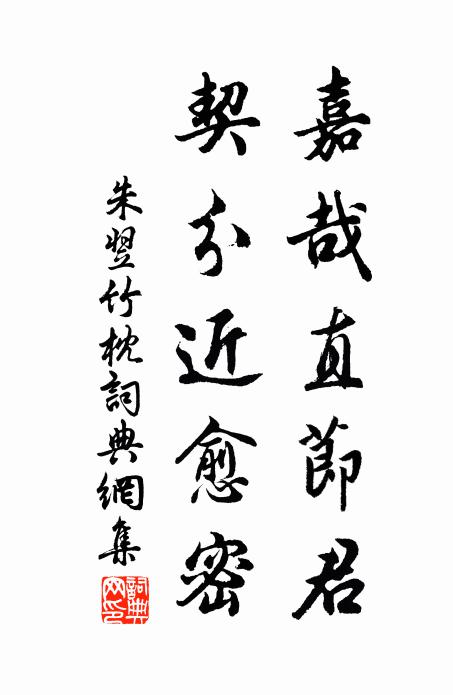 嘉哉直節君
契分近愈密
朱翌竹枕詞典網集
詞典網印